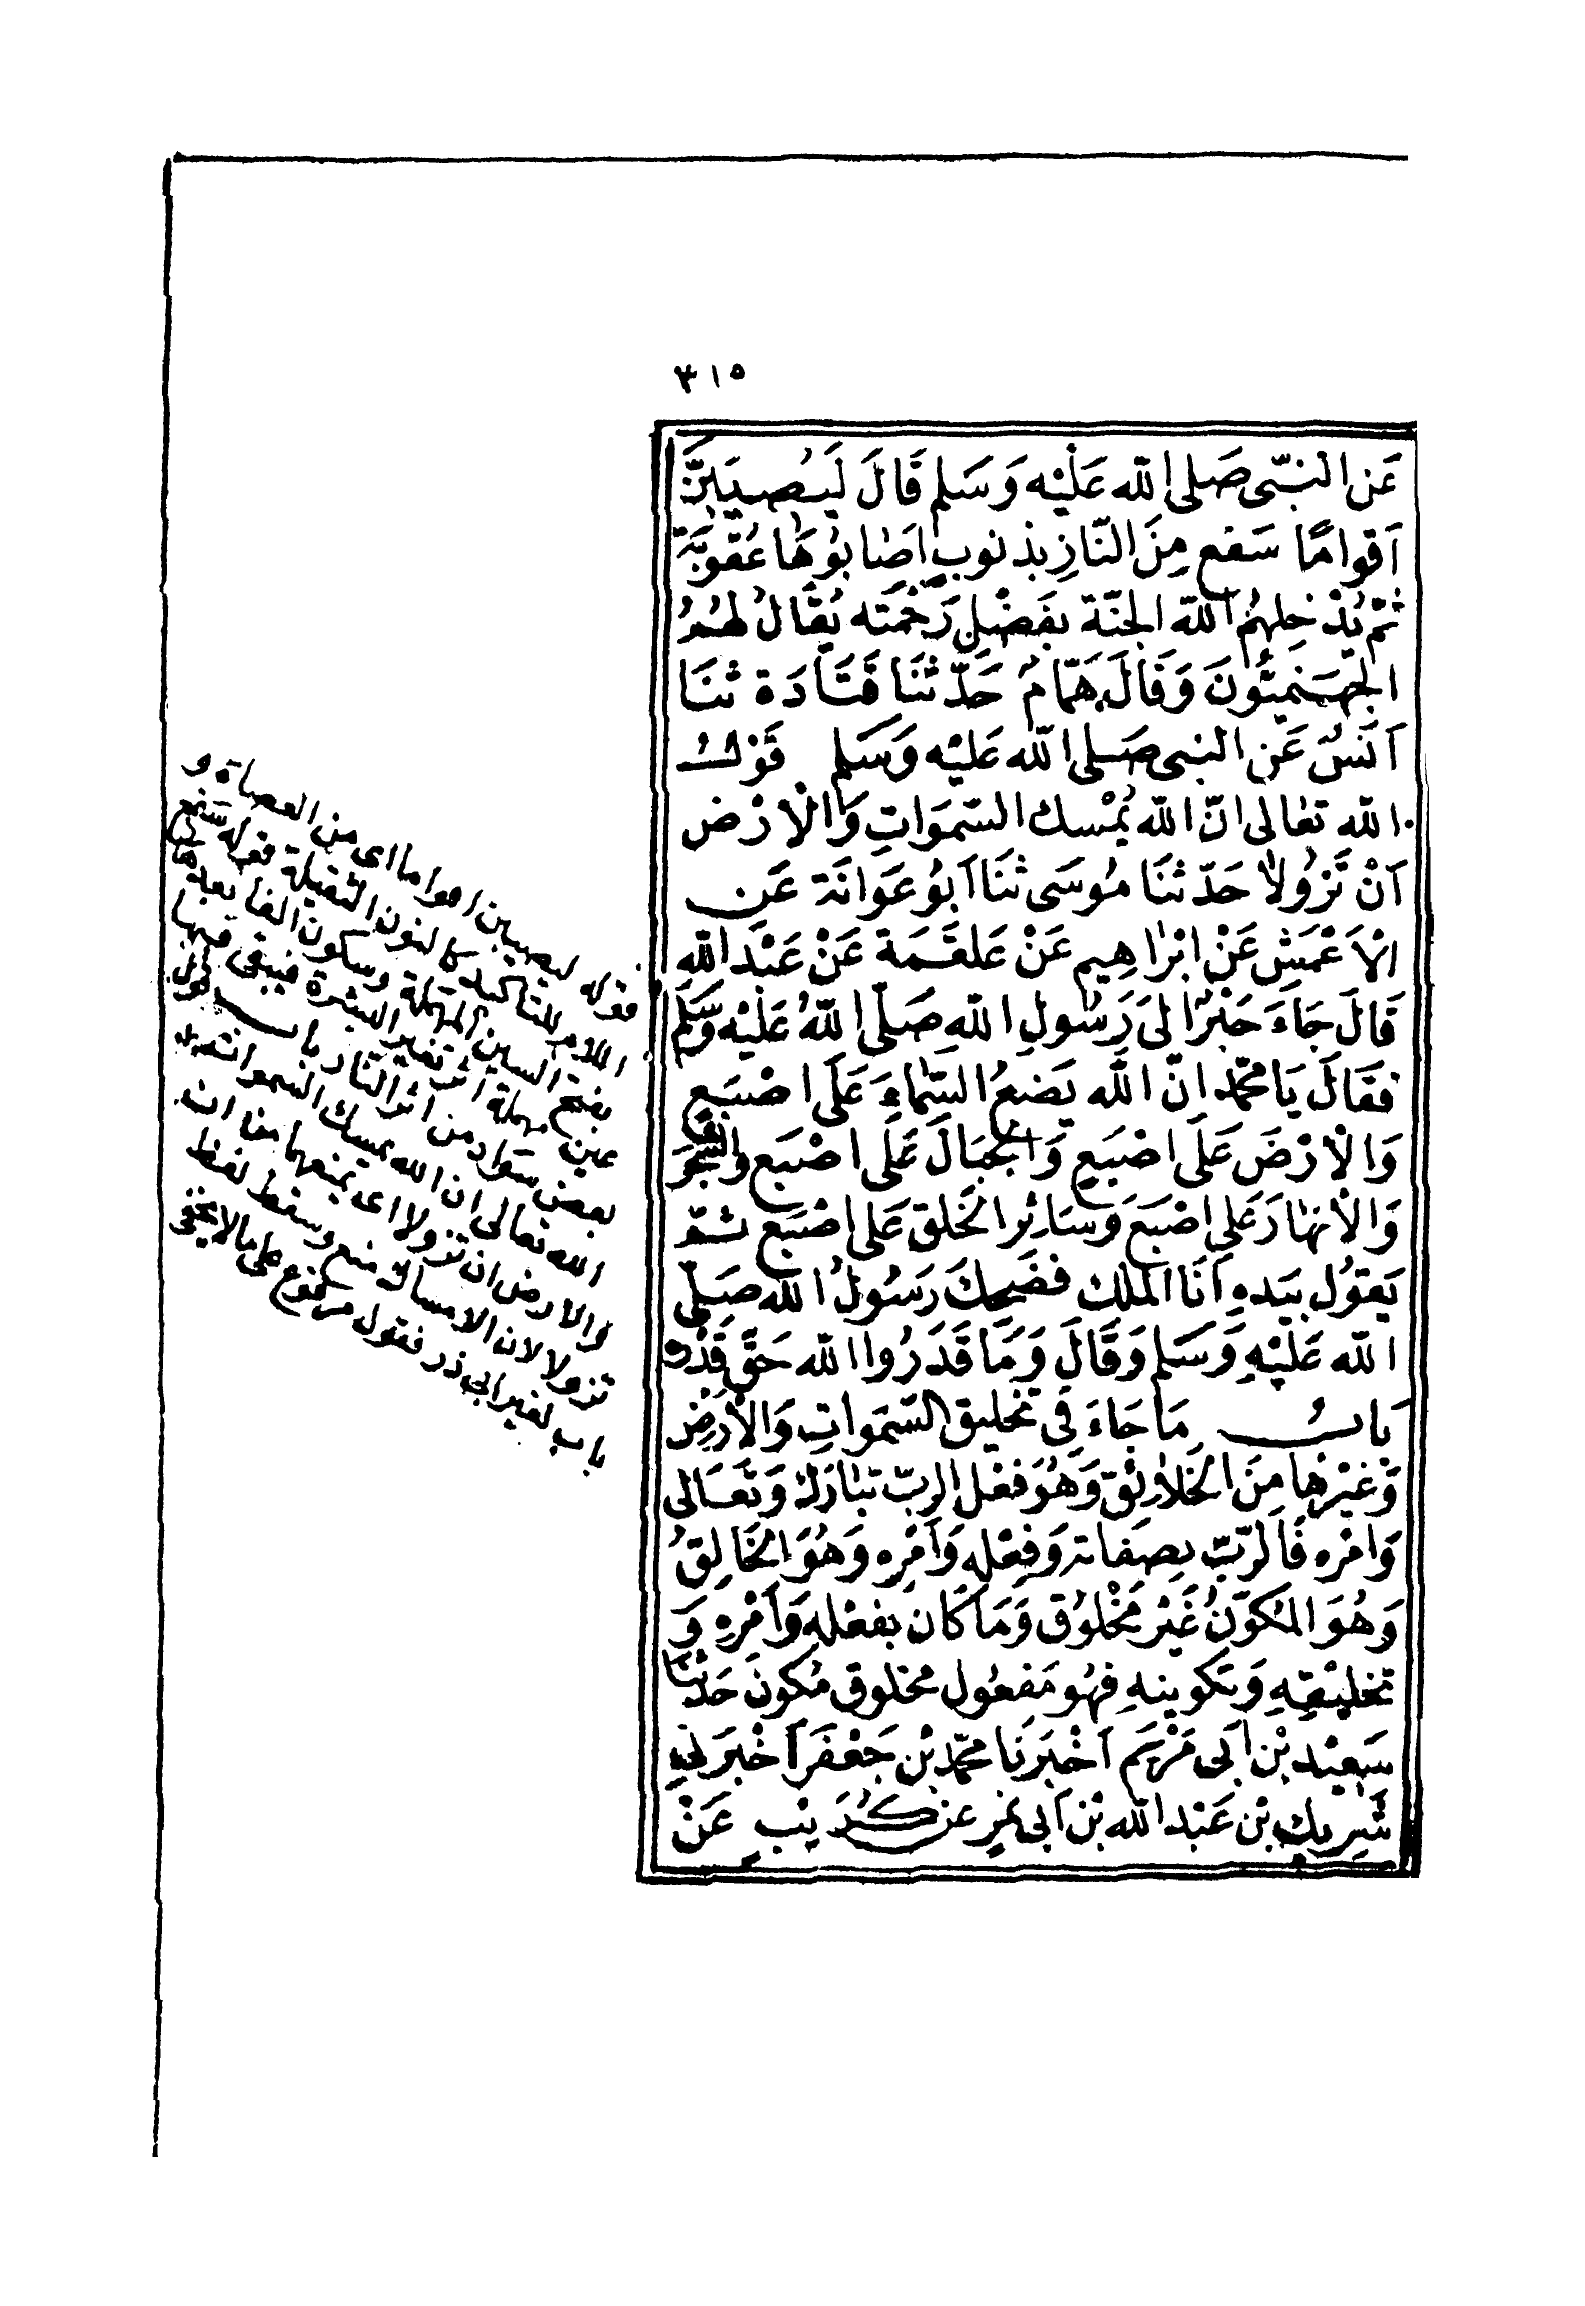 ٣١٥
عَن النبّى صَلى الله عَلَيْه وَسَلم قَالَ لَيُصِيبَنَّ
اَقوامًا سَفع مِنَ النّارِ بذنوبٍ اصَابوُهَا عُقوُبَةً
ثمّ يُدْخِلهُمُ الله الجنّة بفَضْلِ رَحْمَته يُقَالُ لهُمُ
الجَهَنميّوُنَ وَقَالَ هَمّامُ حَدّثنَا قَتَادَة ثنَا
اَنَسٌ عَن النبى صَلى الله عَليْه وَسَلم قَوْلُ
الله تعَالى انّ الله يُمْسك السّموَاتِ وَالْارْض
اَنْ تَزُولاَ حَدّثنَا مُوسَى ثنَا اَبوُ عَوَانَة عَن
الْاَعْمَشِ عَنْ ابْرَاهِيم عَنْ عَلقَمَة عَنْ عَبْد الله
قَالَ جَاءَ حَبْرٌ الىَ رَسُولِ اللهِ صَلّى اللهُ عَلَيْه وَسَلّم
فقَالَ يَا محمّد انّ الله يَضعُ السّمَاءَ عَلَى اصْبَعٍ
وَالْارْضَ عَلَى اصْبَعٍ وَالجبَالَ عَلَى اصْبَع وَالشّجَرَ
وَالْانهَارَ عَلى اصْبَع وَسَائِر الخَلقِ عَلى اصْبَع ثمّ
يَقوُل بيَدهِ اَنَا الملك فضَحِكَ رَسُولُ الله صَلى
الله عَليْهِ وَسَلم وَقَالَ وَمَا قَدَرُوا الله حَقّ قَدْره
بَابُ مَا جَاءَ فِى تخليق السّمَواتِ وَالْارْضِ
وَغيْرهَا مِنَ الخَلائِق وَهُوَ فعْل الربّ تبَارَكَ وَتَعَالى
وَامْره فَالرّبّ بصفاته وَفِعْلهِ وَاَمْرِه وَهُوَ الخَالِقُ
وَهُوَ المُكَوّنُ غَيْر مَخْلوُق وَمَا كَان بفعْله وَاَمْرهِ وَ
تخليْقهِ وَتكوينهِ فهُو مَفعُول مخلوق مُكون حَدثنَا
سَعِيْد بْن اَبى مَرْيَم اَخْبَرنَا محمّد بْن جَعْفَر اَخْبَرَنى
شَرِيك بْن عَبْد الله بْن اَبى نمر عن كُرَيْبٍ عَنْ
قوله ليصيبن اقواما اى من العصاة و
اللام للتاكيد كالنون الثقيلة قوله سَفع
بفتح السين المهملة وسكون الفا بعدها
عين مهملة اثر تغير البشرة فيبقى فيها
بعض سواد من اثر النار باب قول
الله تعالى ان الله يمسك السموات
والارض ان تزولا اى يمنعهما من ان
تزولا لان الامساك منع وسقط لفظ
باب لغير ابى ذر فقول مرفوع على ما لا يخفى